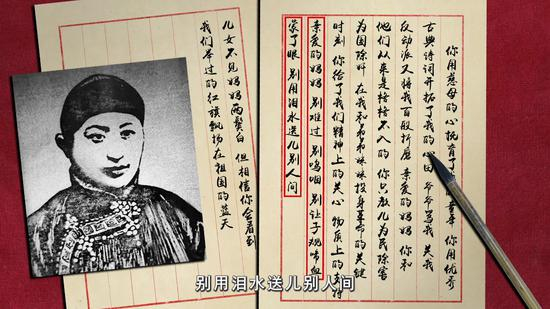 你用慈母的心抚育了我童年 你用优秀
古典诗词开拓了我的心田 爷爷骂我 关我
反动派又将我百般折磨 亲爱的妈妈 你和
他们从来是格格不入的 你只教儿为民除害
为国除奸 在我和弟弟妹妹投身革命的关键
时刻 你给了我们精神上的关心 物质上的支持
亲爱的妈妈 别难过 别呜咽 别让子规啼血
蒙了眼 别用泪水送儿别人间
儿女不见妈妈两鬓白 但相信你会看到
我们举过的红旗飘扬在祖国的蓝天
别用泪水送儿别人间